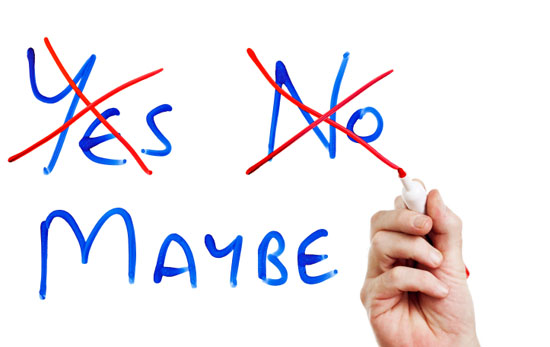 Yes No
MAYBE